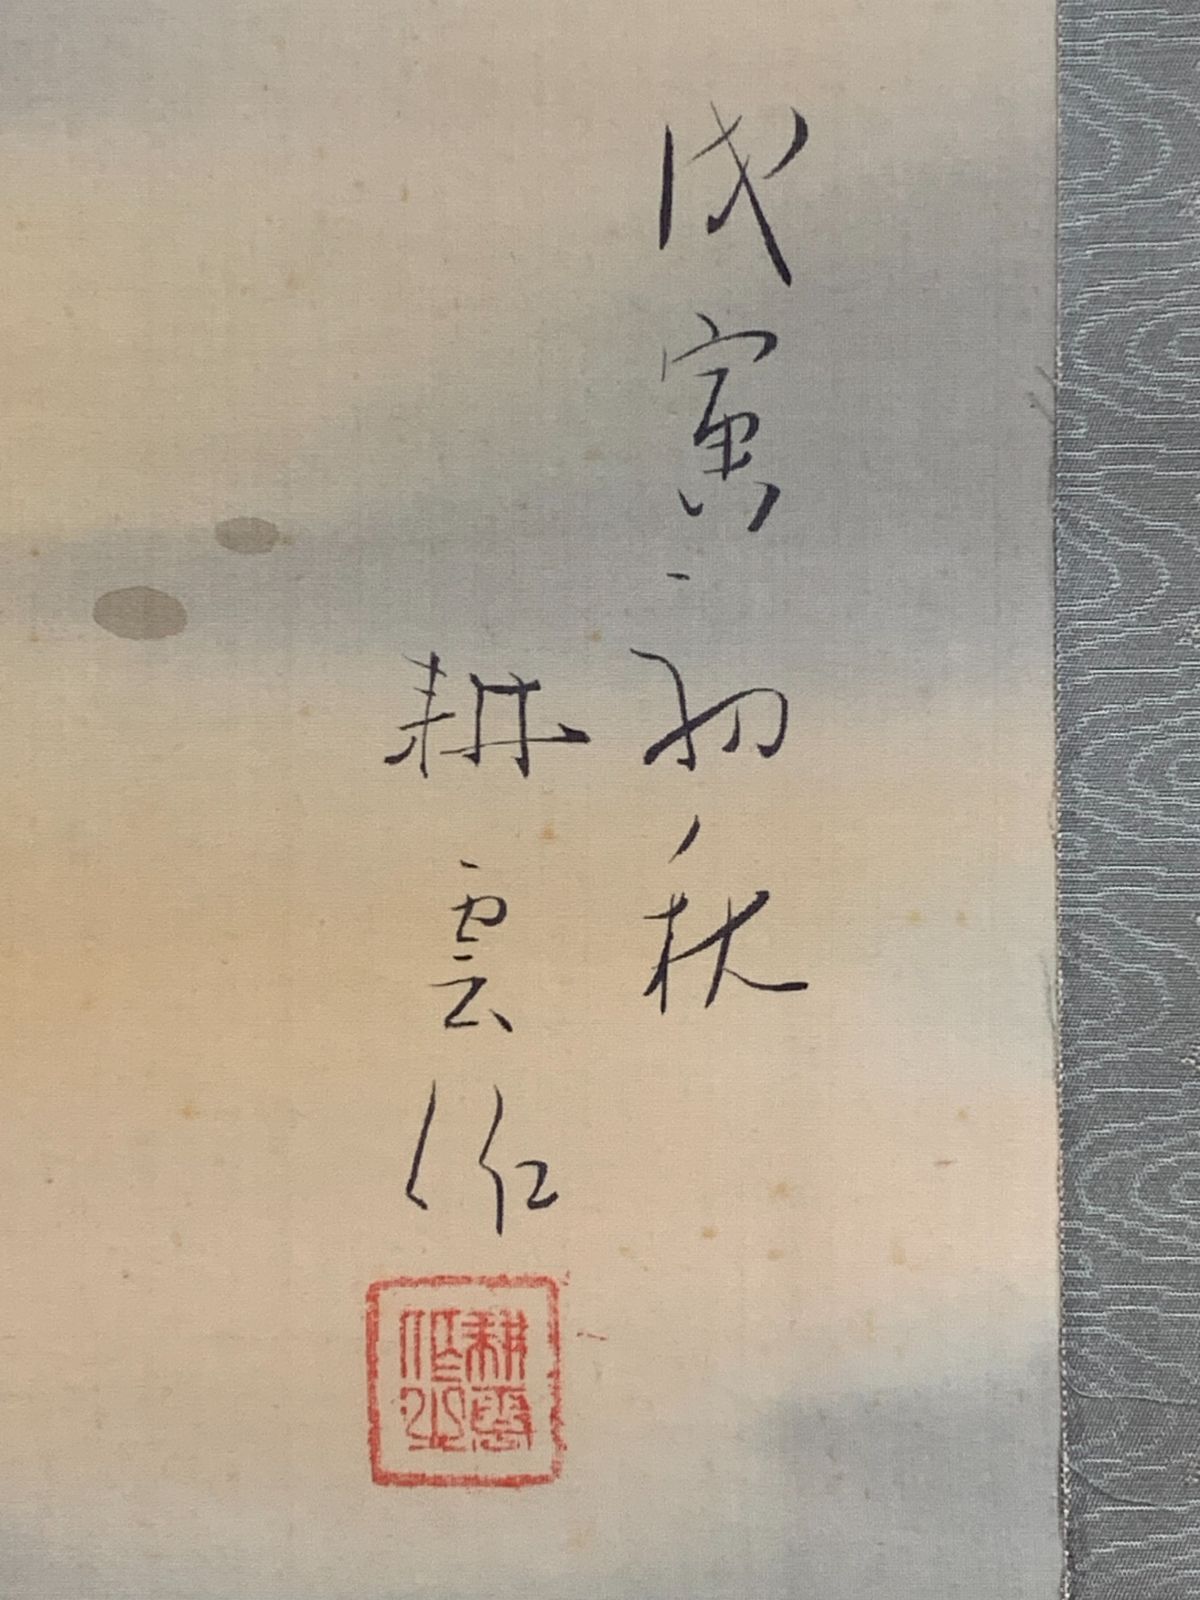 戊寅初秋
耕雲作
耕雲
作